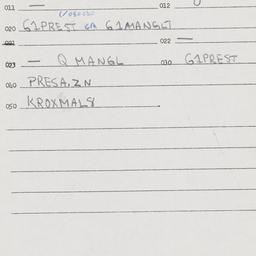 011 — 012
020 G1PREST G1MANGL7
021 022 —
023 — Q MANGL 030 G1PREST
040 PRESA, ZN
050 KROXMAL8